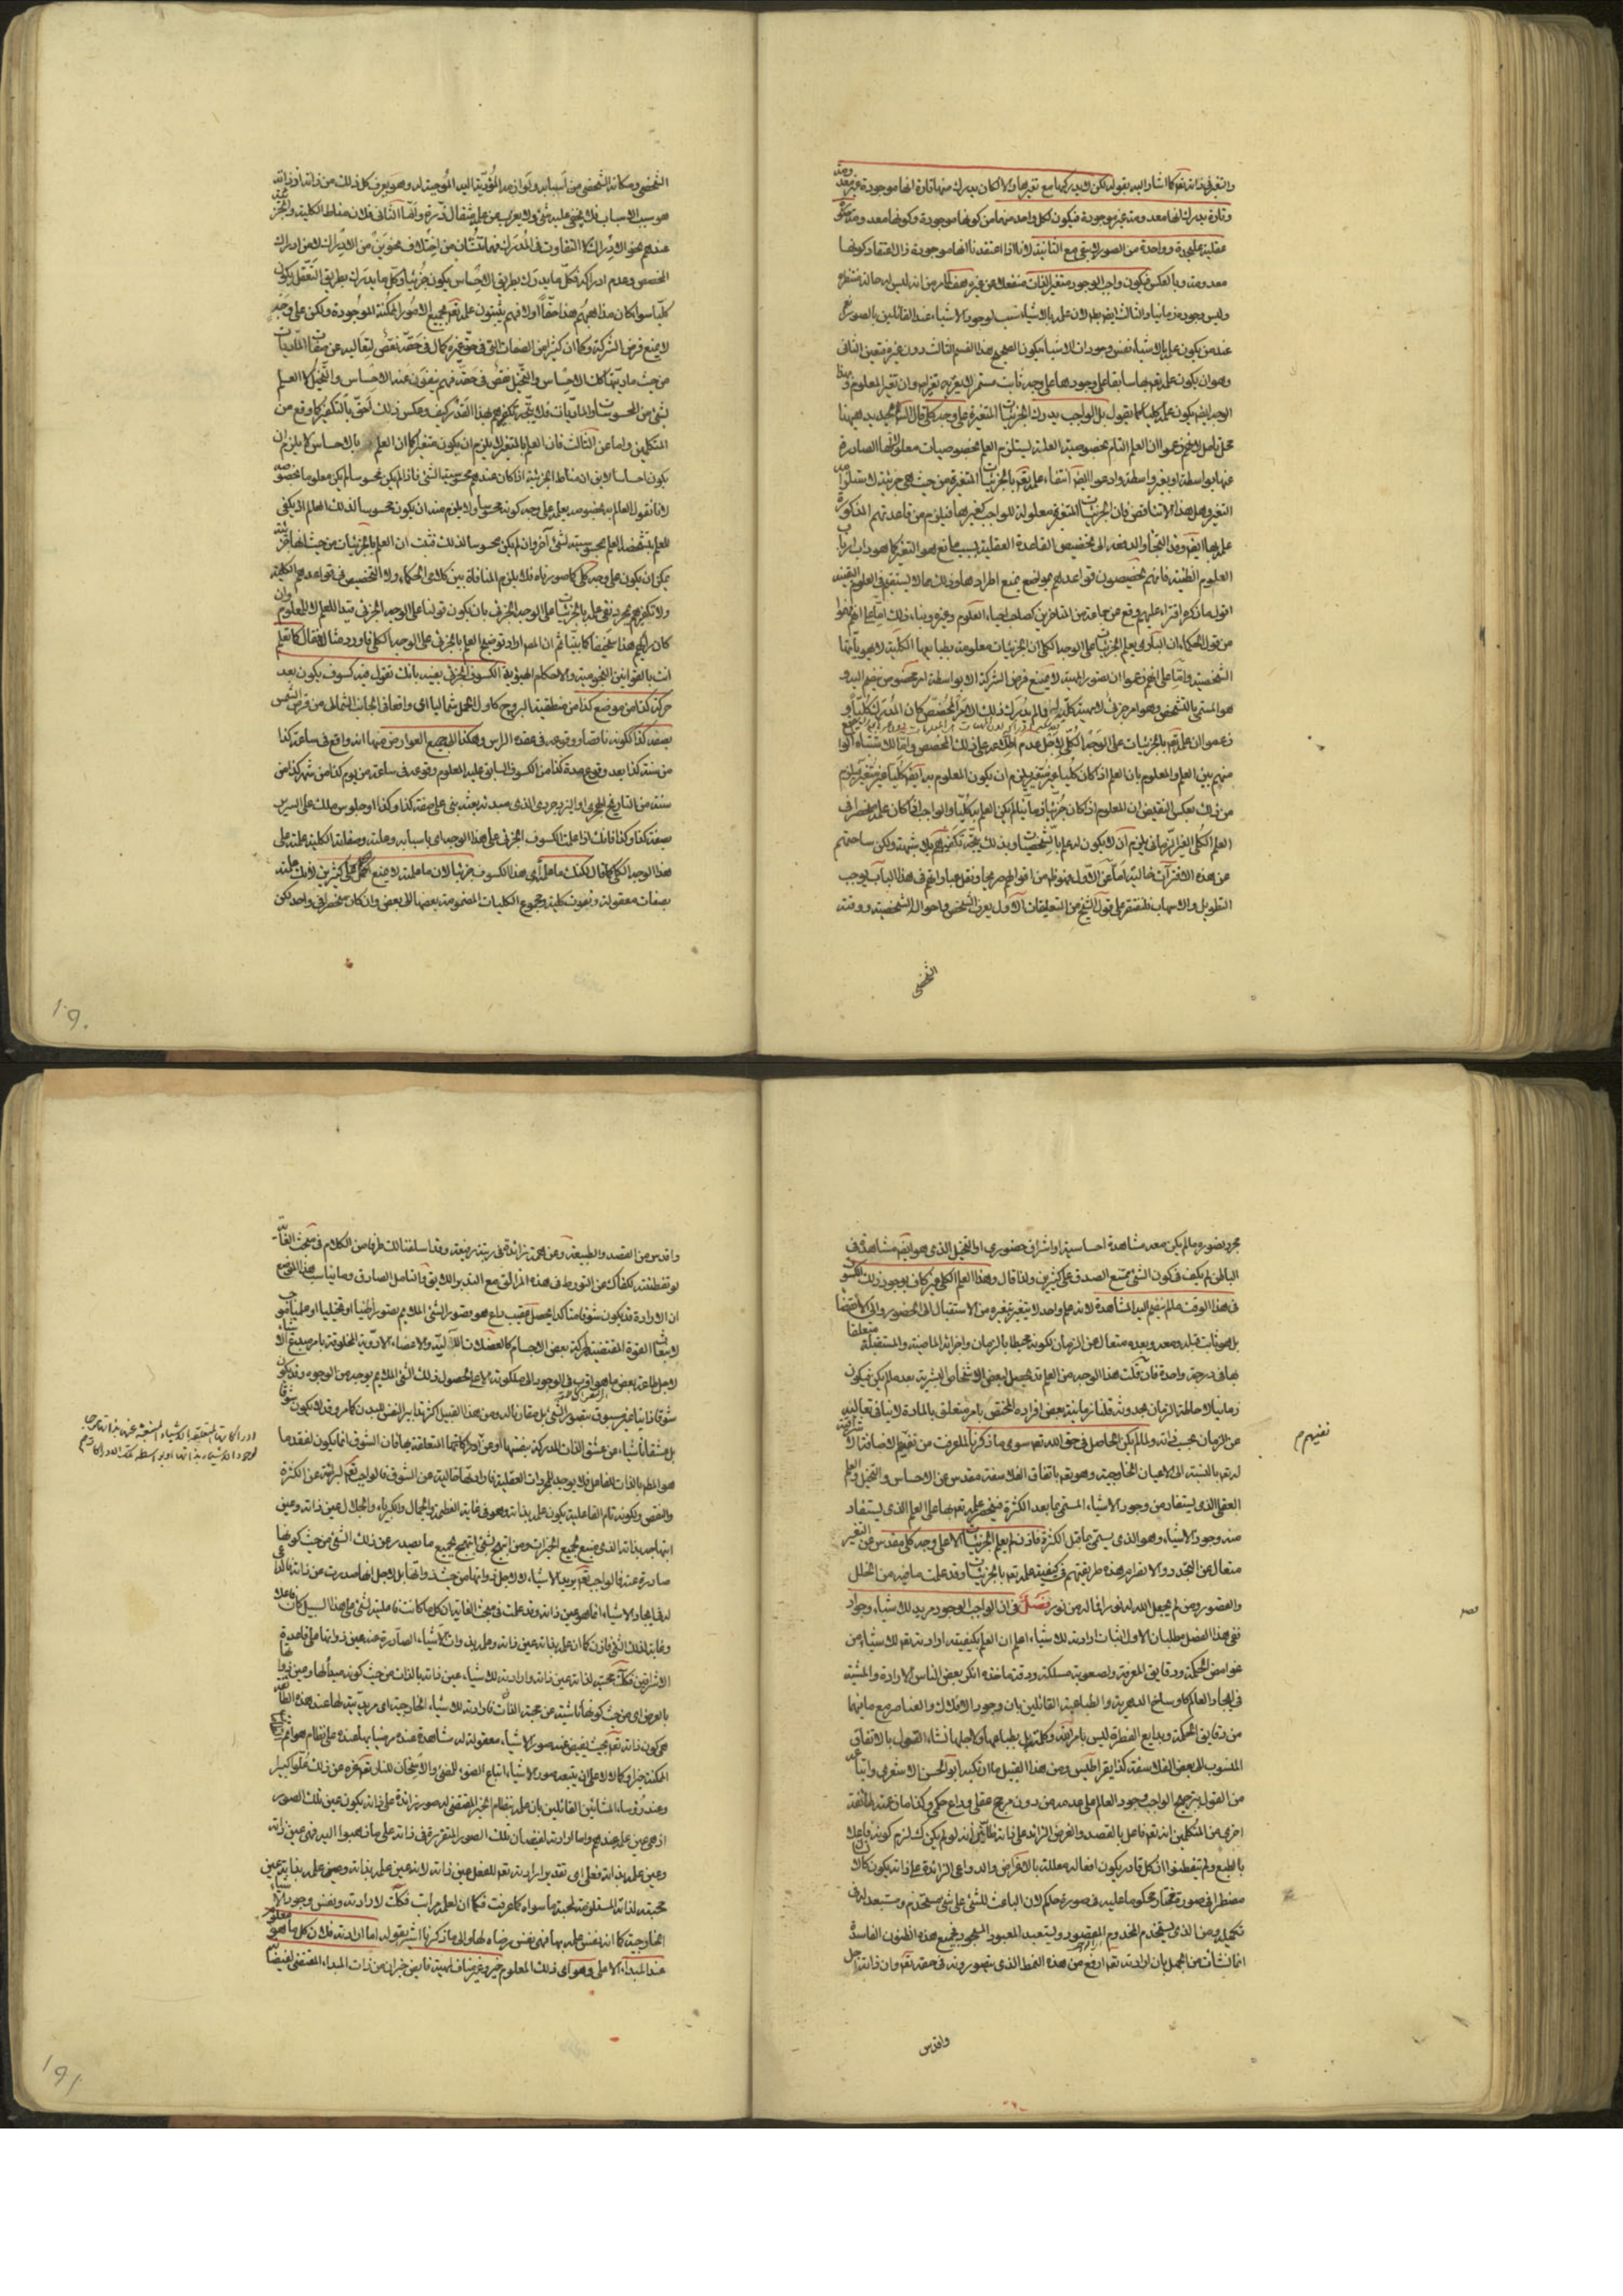 والتغير في ذاته تعالى كما اشار اليه بقوله لكن لا يدركها مع تغيرها والا لكان يدرك منها تارة انها موجودة غير معدومة
وتارة يدرك انها معدومة غير موجودة فيكون لكل واحد منهما من كونها موجودة وكونها معدومة صورة
عقلية على حدة وواحدة من الصورتين لا يبقى مع الثانية لانا اذا اعتقدنا انها موجودة زال اعتقاد كونها
معدومة وبالعكس فيكون واجب الوجود متغير الذات منفعلا عن غيره هف لما مر من انه ليس له حالة منتظرة
وليس وجوده زمانيا والثالث ايضا بط لان علمه بالاشياء سبب لوجود الاشياء عند القائلين بالصور
عنده من يكون علمه بالاشياء نفس وجودات الاشياء فيكون الصحيح هذا القسم الثالث دون غيره فتعين الثاني
وهو ان يكون علمه تعالى بها سابقا على وجودها على وجه ثابت مستمر لا يعتريه تغير اصلا وان تغير المعلوم وبهذا
الوجه ايضا يكون علما كليا كما يقول بل الواجب يدرك الجزئيات المتغيرة على وجه كلي قال ههنا
محل تامل لانهم زعموا ان العلم التام بخصوصية العلة يستلزم العلم بخصوصيات معلولاتها الصادرة
عنها بواسطة او بغير واسطة وادعوا ايضا انتفاء علمه تعالى بالجزئيات المتغيرة من حيث هي جزئية لاستلزامه
التغير وهل هذا الا تناقض فان الجزئيات المتغيرة معلولة للواجب كغيرها فيلزم من قاعدتهم المذكورة
علمه بها ايضا وقد التجأوا لدفعه الى تخصيص القاعدة العقلية بسبب مانع هو التغير كما هو داب ارباب
العلوم الظنية فانهم يخصصون قواعدهم بموانع يمنع اطرادها وذلك مما لا يستقيم في العلوم اليقينية
اقول ما ذكره افتراء عليهم وقع من جماعة من المتاخرين كصاحب احياء العلوم وغيره وبناء ذلك اما على انهم فهموا
من قول الحكماء ان الباري يعلم الجزئيات على الوجه الكلي ان الجزئيات معلومة بطبايعها الكلية لا بهوياتها
الشخصية واما على انهم زعموا ان تصور الماهية لا يمنع فرض الشركة الا بواسطة امر مخصوص ينضم اليه و
هو المسمى بالتشخص وهو امر جزئي لا ماهية كلية له وما لم يدرك ذلك الامر المخصص كان المدرك كليا و
زعموا ان علمه تعالى بالجزئيات على الوجه الكلي لاجل عدم اطلاعه على ذلك المخصص واما لاشتباه وقع
منهم بين العلم والمعلوم بان العلم اذا كان كليا غير متغير يلزم ان يكون المعلوم به ايضا كليا غير متغير ويلزم
من ذلك بعكس النقيض ان المعلوم اذا كان جزئيا زمانيا لم يكن العلم به كليا والواجب لما كان علمه منحصرا في
العلم الكلي الغير الزماني يلزم ان لا يكون له علم بالشخصيات وبذلك يتجه تكفيرهم بلا شبهة ولكن ساحتهم
عن هذه الافتراآت خالية اما عن الاول فهو ظاهر من اقوالهم صريحا ونقل عباراتهم في هذا الباب يوجب
التطويل والاسهاب فلنقتصر على قول الشيخ في التعليقات الاول يعرف الشخص واحواله الشخصية ووقته
الشخصي
الشخصي ومكانه الشخصي من اسبابه ولوازمه المؤدية اليه الموجبة له وهو يعرف كل ذلك من ذاته اذ ذاته
هو سبب الاسباب فلا يخفى عليه شئ ولا يعزب عن علمه مثقال ذرة واما الثاني فلان مناط الكلية والجزئية
عندهم هو الادراك لا التفاوت في المدرك فهما تنشآن من اختلاف نحوين من الادراك لا من ادراك
المخصص وعدم ادراكه فكل ما يدرك بطريق الاحساس يكون جزئيا وكل ما يدرك بطريق التعقل يكون
كليا سواء كان مذهبهم هذا حقا او لا فهم يثبتون علمه تعالى بجميع الامور الممكنة الموجودة ولكن على وجه
لا يمنع فرض الشركة وكما ان كثيرا من الصفات التي في حق غيره كمال في حقه نقص لتعاليه عن صفات الماديات
من حيث ماديتها كذلك الاحساس والتخيل نقص في حقه فهم ينفون عنه الاحساس والتخيل لا العلم
بشئ من المحسوسات والماديات فلا يتجه تكفيرهم بهذا القدر كيف وعكس ذلك احق بالتكفير كما وقع من
المتكلمين واما عن الثالث فان العلم بالمتغير لا يلزم ان يكون متغيرا كما ان العلم بالاحساس لا يلزم ان
يكون احساسا لا يق ان مناط الجزئية اذا كان عندهم محسوسية الشئ فاذا لم يكن محسوسا لم يكن معلوما بخصوصه
لانا نقول العالم بخصوصه يعلم على وجه كونه محسوسا ولا يلزم منه ان يكون محسوسا لذلك العالم اذ يكفي
للعلم بتشخصه العلم بمحسوسيته لشئ آخر وان لم يكن محسوسا لذلك فثبت ان العلم بالجزئيات من حيث انها جزئية
يمكن ان يكون على وجه كلي كما صورناه فلا يلزم المنافاة بين كلامي الحكماء ولا التخصيص في قواعدهم الكلية
ولا تكفيرهم بمجرد نفي علمه بالجزئيات على الوجه الجزئي بان يكون قولنا على الوجه الجزئي قيدا للعلم لا للمعلوم وان
كان رايهم هذا سخيفا كما بينا ثم ان المص اراد توضيح العلم بالجزئي على الوجه الكلي فاورد مثالا فقال كما تعلم
انت بالقوانين النجومية والاحكام الهيوية الكسوف الجزئي بعينه بانك تقول فيه كسوف يكون بعد
حركة كذا من موضع كذا من منطقة البروج كاول الحمل شماليا اي واقعا في الجانب الشمالي من قرص الشمس
بصفة كذا لكونه ناقصا ووقوعه في عقدة الراس وهكذا الى جميع العوارض منها انه واقع في ساعة كذا
من سنة كذا بعد وقوع مدة كذا من الكسوف السابق عليه المعلوم وقوعه في ساعة من يوم كذا من شهر كذا من
سنة من التاريخ الهجري او اليزدجردي الذي مبدئه بعثة نبي على صفة كذا وكذا او جلوس ملك على السرير
بصفة كذا وكذا فانك اذا علمت الكسوف الجزئي على هذا الوجه اي باسبابه وعلله وصفاته الكلية علمته على
هذا الوجه الكلي كما قال لكنك ما علمته اي هذا الكسوف جزئيا لان ما علمته لا يمنع الحمل على كثيرين لانك علمته
بصفات معقولة ونعوت كلية ومجموع الكليات المضمومة بعضها الى بعض وان كان منحصرا في واحد لكن
١٩٠
مجرد تصوره ما لم يكن معه مشاهدة احساسية او اشراق حضوري او التخيل الذي هو ايضا مشاهدة في
الباطن لم يكف في كون الشئ ممتنع الصدق على كثيرين ولذا قال وهذا العلم الكلي غير كاف بوجود ذلك الكسوف
في هذا الوقت ما لم ينضم اليه المشاهدة لانه علم واحد لا يتغير بتغيره من الاستقبال الى الحضور والى الانقضاء
بل هو ثابت قبله ومعه وبعده متعال عن الزمان لكونه محيطا بالزمان واجزائه الماضية والمستقبلة متعلقا
بها في درجة واحدة فان قلت هذا الوجه من العلم قد يحصل لبعض الاشخاص البشرية بعد ما لم يكن فيكون
زمانيا لا محالة لزمان حدوثه قلنا زمانية بعض افراده المختص بامر متعلق بالمادة لا ينافي تعاليه
عن الزمان بحسب ذاته ولما لم يكن الحاصل في حق الله تعالى سوى ما ذكرنا لما عرفت من نفيهم الاضافة الاشراقية
له تعالى بالنسبة الى الاعيان الخارجية وهو تعالى باتفاق الفلاسفة مقدس عن الاحساس والتخيل والعلم
العقلي الذي يستفاد من وجود الاشياء المسمى بما بعد الكثرة فينحصر علمه تعالى بها على العلم الذي يستفاد
منه وجود الاشياء وهو الذي يسمى بما قبل الكثرة فاذن لم يعلم الجزئيات الا على وجه كلي مقدس عن التغير
متعال عن التجدد والانصرام هذه طريقتهم في كيفية علمه تعالى بالجزئيات وقد علمت ما فيه من الخلل
والقصور ومن لم يجعل الله له نورا فما له من نور فصل في ان الواجب الوجود مريد للاشياء وجواد
ففي هذا الفصل مطلبان الاول اثبات ارادته للاشياء اعلم ان العلم بكيفية ارادته تعالى للاشياء من
غوامض الحكمة ودقايق المعرفة ولصعوبة مسلكه ودقة ماخذه انكر بعض الناس الارادة والمشية
في ايجاد العالم كاوساخ الدهرية والطباعية القائلين بان وجود الافلاك والعناصر مع ما فيهما
من دقايق الحكمة وبدايع الفطرة ليس بامر الله وكلمته بل بطباعها ولاجلها نشاء القول بالاتفاق
المنسوب الى بعض الفلاسفة كذيمقراطيس ومن هذا القبيل ما ارتكبه ابو الحسن الاشعري واتباعه
من القول بترجيح الواجب وجود العالم على عدمه من دون مرجح عقلي وداع حكمي وكذا ما زعمته طائفة
اخرى من المتكلمين انه تعالى فاعل بالقصد والغرض الزائد على ذاته ظانين انه لو لم يكن كذلك لزم كونه فاعلا
بالطبع ولم يتفطنوا ان كل قادر يكون افعاله معللة بالاغراض والدواعي الزائدة على ذاته يكون كالا
مضطرا في صورة مختار محكوما عليه في صورة حاكم لان الباعث للشئ على شئ مستخدم ومستعبد له في
تكميله ومن الذي يستخدم المخدوم المقصود ويستعبد المعبود المسجود فجميع هذه الظنون الفاسدة
انما نشأت من الجهل بان ارادته تعالى ارفع من هذه النمط الذي يتصورونه في حقه تعالى وان ذاته اجل
واقدس
نفيهم م
واقدس من القصد والطبيعة وعن همة زائدة في رتبة رفيعة وقد اسلفنا لك طرفا من الكلام في مبحث الغاية
لو تفطنت به لكفاك عن التورط في هذه المزالق مع التدبر اللايق والتامل الصادق وما يناسب هذا الموضع
ان الارادة قد يكون شوقا متاكدا يحصل عقيب داع هو تصور الشئ الملايم تصورا ظنيا او تخيليا او علميا موجبا
لانبعاث القوة المقتضية لحركة بعض الاجسام كالعضلات الآلية والاعضاء الادوية المخلوقة بامر مبدع الاشياء
لاجل طاعة بعض ما هو اقرب في الوجود الى ملكوته الاعلى لحصول ذلك الشئ الملايم بوجه من الوجوه وقد يكون
شوقا ذاتيا غير مسبوق بتصور الشئ بل مقارنا له ومن هذا القبيل اكثر تدابير النفس للبدن كما مر وقد لا يكون شوقا
بل عشقا ناشيا من عشق الذات المدركة بنفسها او من ادراكاتها المتعلقة بها فان الشوق انما يكون لفقد ما
هو الملايم بالذات للفاعل فلا يوجد للمجردات العقلية فارادتها خالية عن الشوق فالواجب تعالى لبرائته عن الكثرة
والنقص ولكونه تام الفاعلية يكون علمه بذاته وهو في غاية العظمة والجمال والكبرياء والجلال عين ذاته وعين
ابتهاجه بذاته الذي منبع جميع الخيرات ومن ابتهج بشئ ابتهج بجميع ما يصدر عن ذلك الشئ من حيث كونها
صادرة عنه فالواجب تعالى يريد الاشياء لا لاجل ذواتها من حيث ذواتها بل لاجل انها صدرت من ذاته فالداعي
له في ايجاد الاشياء انما هو عين ذاته وقد علمت في مبحث الغايات ان كل ما كانت فاعليته لشئ على هذا السبيل كان فاعلا
وغاية لذلك الشئ فاذن كما ان علمه بذاته عين ذاته وعلمه بذوات الاشياء الصادرة عنه عين ذواتها على قاعدة
الاشراقيين فكذا محبته لذاته عين ذاته وارادته للاشياء عين ذاته بالذات من حيث كونه مبدأ لها وعين ذواتها
بالعرض اي من حيث كونها ناشية من محبته الذات فارادته للاشياء الخارجية اي مريديته لها عند هذه الطائفة
هي كون ذاته تعالى بحيث يفيض عنه صور الاشياء معقولة له مشاهدة عنده مرضيا بها عنده على نظام هو اتم
الممكنة خيرا وكمالا لا على ان يتبعه صور الاشياء اتباع الضوء للمضئ والاسخان للنار تعالى عن ذلك علوا كبيرا
وعند رؤساء المشائين القائلين بان علمه بنظام الخير المقتضي له صور زائدة على ذاته يكون عين تلك الصور
اذ هي عين علمه عندهم واما ارادته لفيضان تلك الصور المتقررة في ذاته على ما ذهبوا اليه فهي عين ذاته
وعين علمه بذاته فعلى اي تقدير ارادته تعالى للفعل عين ذاته لانه عين علمه بذاته وهي علمه بذاته عين
محبته لذاته المستلزمة لمحبة ما سواه كما عرفت فكما ان لعلمه مراتب فكذا لارادته ونفس وجود الاشياء
الخارجية كما انه نفس علمه بها فهي نفس رضاه لها والى ما ذكرنا اشير بقوله اما ارادته فلان كل ما هو معلوم
عند المبدأ الاعلى وهو اي ذلك المعلوم خير وغير مناف لماهية فايض جزان من ذات المبداء المقتضي لفيضانه
١٩١